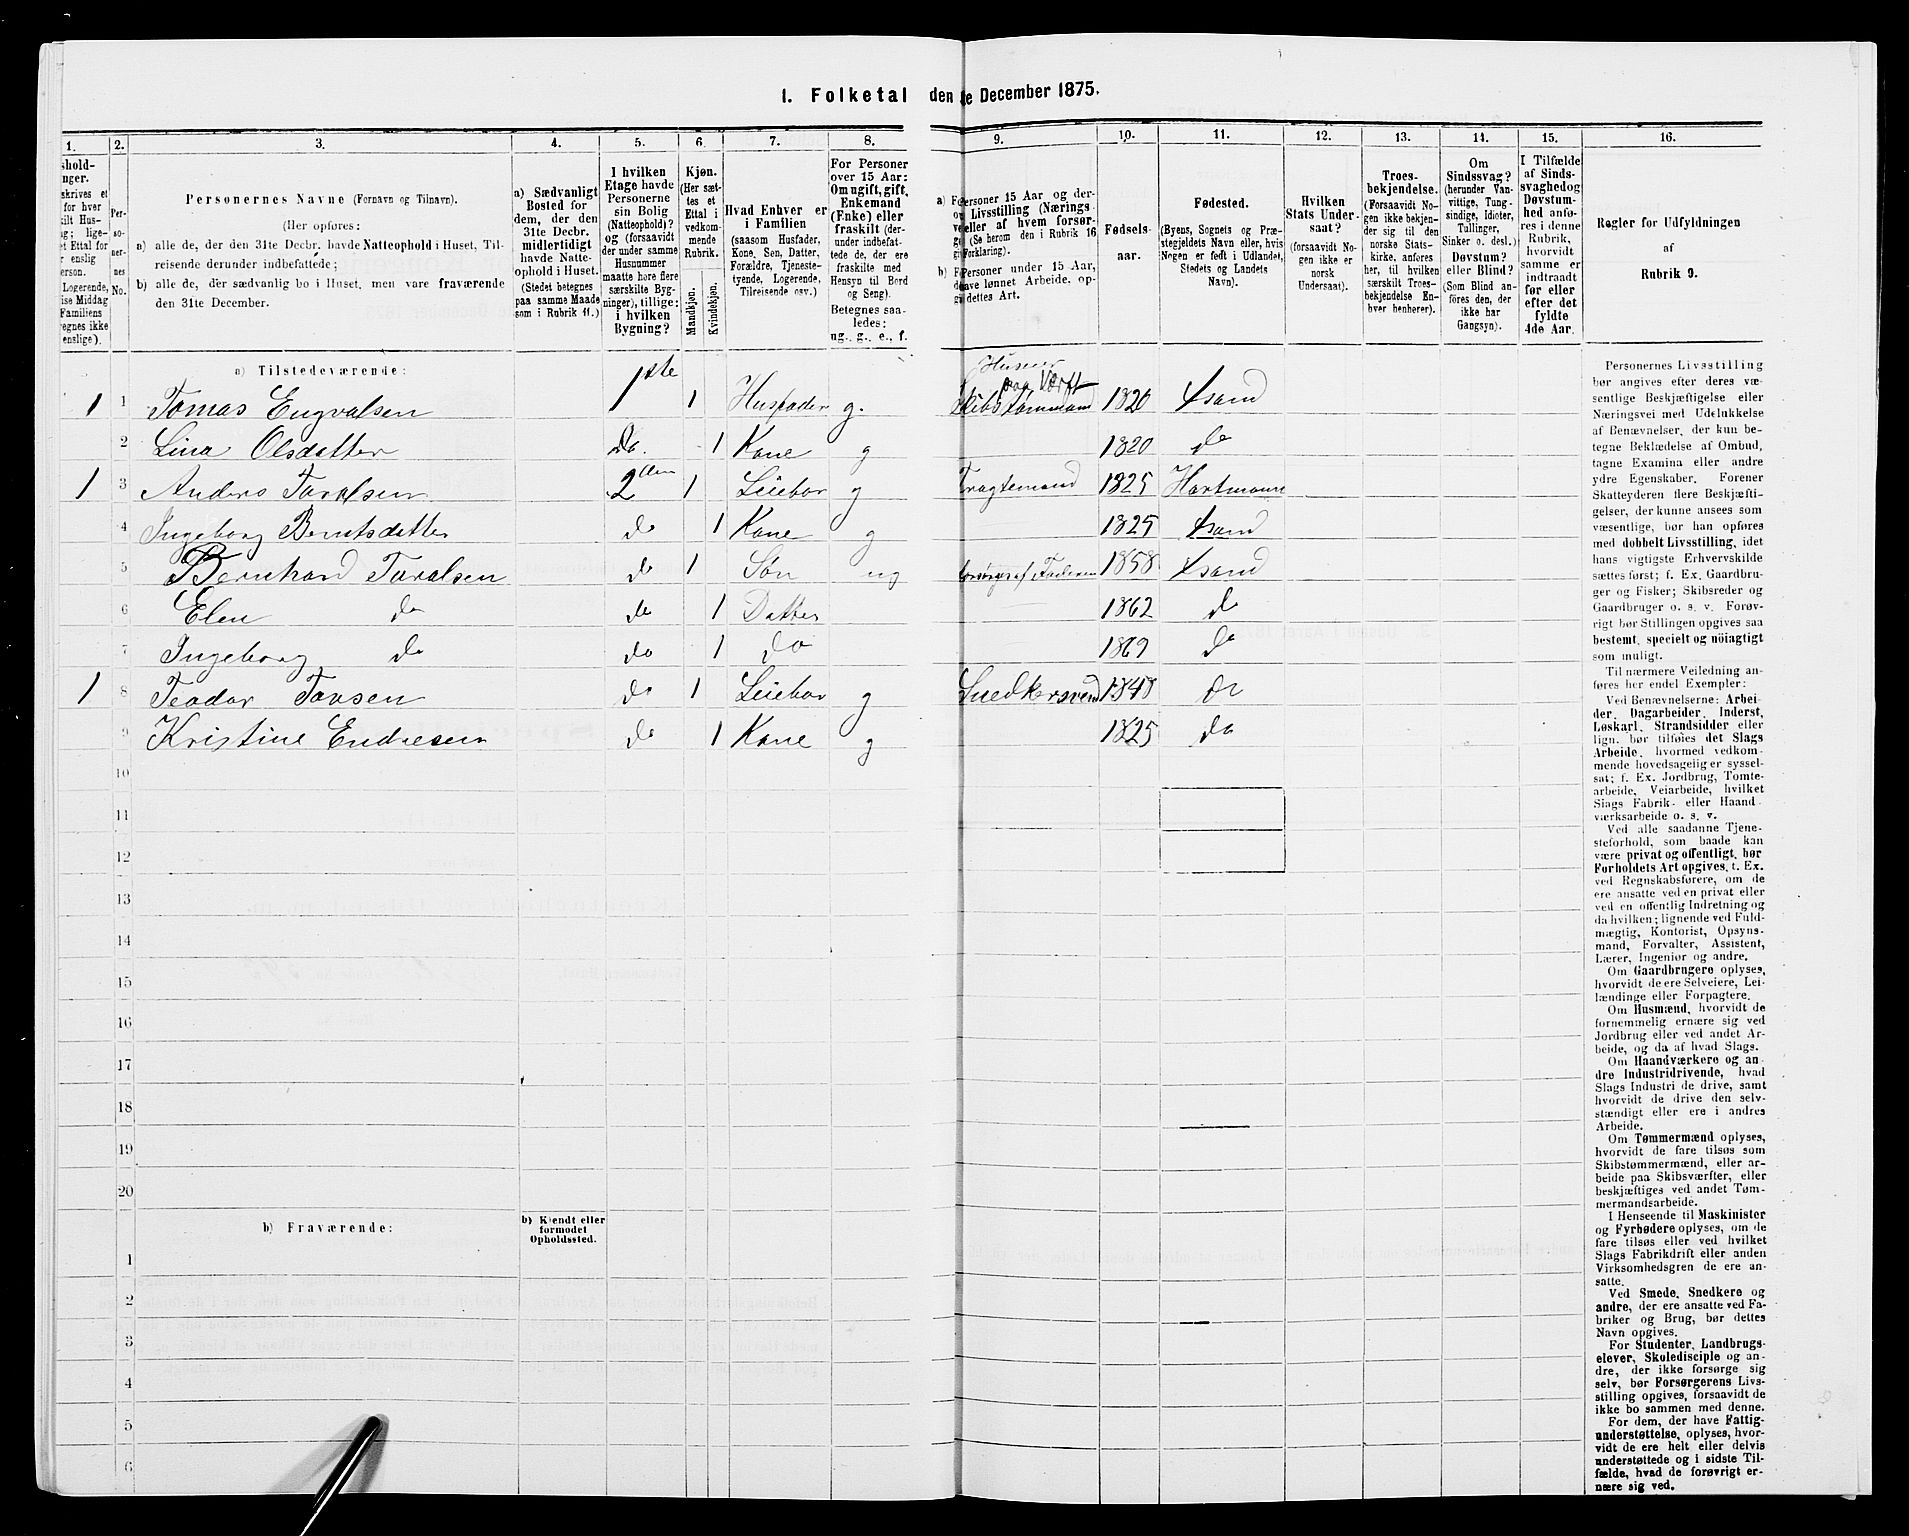 1. Folketal den 1e December 1875.
1. 2. 3. 4. 5. 6. 7. 8. 9. 10. 11. 12. 13. 14. 15. 16.
Personernes Navne (Fornavn og Tilnavn).
(Her opføres:
a) alle de, der den 31te Decbr. havde Natteophold i Huset, Tilreisende derunder indbefattede;
b) alle de, der sædvanlig bo i Huset, men vare fraværende den 31te December.
a) Sædvanligt Bosted for dem, der den 31te Decbr. midlertidigt havde Natteophold i Huset. (Stedet betegnes paa samme Maade som i Rubrik 11.)
I hvilken Etage havde Personerne sin Bolig (Natteophold)? og (forsaavidt der under samme Husnummer maatte høre flere særskilte Bygninger), tillige: i hvilken Bygning?
Kjøn. (Her sættes et Ettal i vedkommende Rubrik.
Mandkjøn. Kvindekjøn.
Hvad Enhver er i Familien (saasom Husfader, Kone, Søn, Datter, Forældre, Tjenestetyende, Logerende, Tilreisende osv.)
For Personer over 15 Aar: Om ugift, gift, Enkemand (Enke) eller fraskilt (derunder indbefattede de, der ere fraskilte med Hensyn til Bord og Seng). Betegnes saaledes: ug., g., e., f.
Fødsels-aar.
Fødested. (Byens, Sognets og Præstegjeldets Navn eller, hvis Nogen er født i Udlandet, Stedets og Landets Navn).
Hvilken Stats Undersaat? (forsaavidt Nogen ikke er norsk Undersaat).
Troesbekjendelse. (Forsaavidt Nogen ikke bekjender sig til den norske Statskirke, anføres her, til hvilken særskilt Troesbekjendelse Enhver henhører).
Om Sindssvag? (herunder Vanvittige, Tungsindige, Idioter, Tullinger, Sinker o. desl.) Døvstum? eller Blind? (Som Blind anføres den, der ikke har Gangsyn).
I Tilfælde af Sindssvaghed og Døvstumhed anføres i denne Rubrik, hvorvidt samme er indtraadt før eller efter det fyldte 4de Aar.
Regler for Udfyldningen af Rubrik 9.
a) Tilstedeværende:
1 1 Tomas Engvalsen 1ste 1 Husfader g. Skibstømmand 1820 Asand
2 Lina Olsdatter Do. 1 Kone g 1820 do
1 3 Anders Taralsen 2den 1 Leiebor g Fragtemand 1825 Hartmann
4 Ingeborg Berntsdatter do 1 Kone g 1825 Asand
5 Bernhard Taralsen do 1 Søn ug forsørges af Faderen 1858 Asand
6 Elen do do 1 Datter 1862 do
7 Ingeborg do do 1 do 1869 do
1 8 Teodor Tovsen do 1 Leiebor g Snedkersvend 1848 do
9 Kristine Endresen do 1 Kone g 1825 do
10
11
12
13
14
15
16
17
18
19
20
b) Fraværende:
b) Kjendt eller formodet Opholdssted.
1
2
3
4
5
6
Personernes Livsstilling
bør angives efter deres væ-
sentlige Beskjæftigelse eller
Næringsvei med Udelukkelse
af Benævnelser, der kun be-
tegne Beklædelse af Ombud,
tagne Examina eller andre
ydre Egenskaber. Forener
Skatteyderen flere Beskjæfti-
gelser, der kunne ansees som
væsentlige, bør han opføres
med dobbelt Livsstilling, idet
hans vigtigste Erhvervskilde
sættes først; f. Ex. Gaardbru-
ger og Fisker; Skibsreder og
Gaardbruger o. s. v. Forøv-
rigt bør Stillingen opgives saa
bestemt, specielt og nöiagtigt
som muligt.
Til nærmere Veiledning an-
føres her endel Exempler:
Ved Benævnelserne: Arbei-
der, Dagarbeider, Inderst,
Løskarl, Strandsidder eller
lign. bør tilføies det Slags
Arbeide, hvormed vedkom-
mende hovedsagelig er syssel-
sat; f. Ex. Jordbrug, Tomte-
arbeide, Veiarbeide, hvilket
Slags Fabrik- eller Haand-
værksarbeide o. s. v.
Ved alle saadanne Tjene-
steforhold, som baade kan
være privat og offentligt, bør
Forholdets Art opgives, f. Ex.
ved Regnskabsførere, om de
ere ansatte ved en privat eller
ved en offentlig Indretning og
da hvilken; lignende ved Fuld-
mægtig, Kontorist, Opsyns-
mand, Forvalter, Assistent,
Lærer, Ingeniør og andre.
Om Gaardbrugere oplyses,
hvorvidt de ere Selveiere, Lei-
lændinge eller Forpagtere.
Om Husmænd, hvorvidt de
fornemmelig ernære sig ved
Jordbrug eller ved andet Ar-
beide, og da af hvad Slags.
Om Haandværkere og an-
dre Industridrivende, hvad
Slags Industri de drive, samt
hvorvidt de drive den selv-
stændigt eller ere i andres
Arbeide.
Om Tømmermænd oplyses,
hvorvidt de fare tilsøs som
Skibstømmermænd, eller ar-
beide paa Skibsværfter, eller
beskjæftiges ved andet Tøm-
mermandsarbeide.
I Henseende til Maskinister
og Fyrbødere oplyses, om de
fare tilsøs eller ved hvilket
Slags Fabrikdrift eller anden
Virksomhedsgren de ere an-
satte.
Ved Smede, Snedkere og
andre, der ere ansatte ved Fa-
briker og Brug, bør dettes
Navn opgives.
For Studenter, Landbrugs-
elever, Skoledisciple og an-
dre, der ikke forsørge sig
selv, bør Forsørgerens Livs-
stilling opgives, forsaavidt de
ikke bo sammen med denne.
For dem, der have Fattig-
understøttelse, oplyses, hvor-
vidt de ere helt eller delvis
understøttede og i sidste Til-
fælde, hvad de forøvrigt er-
nære sig ved.